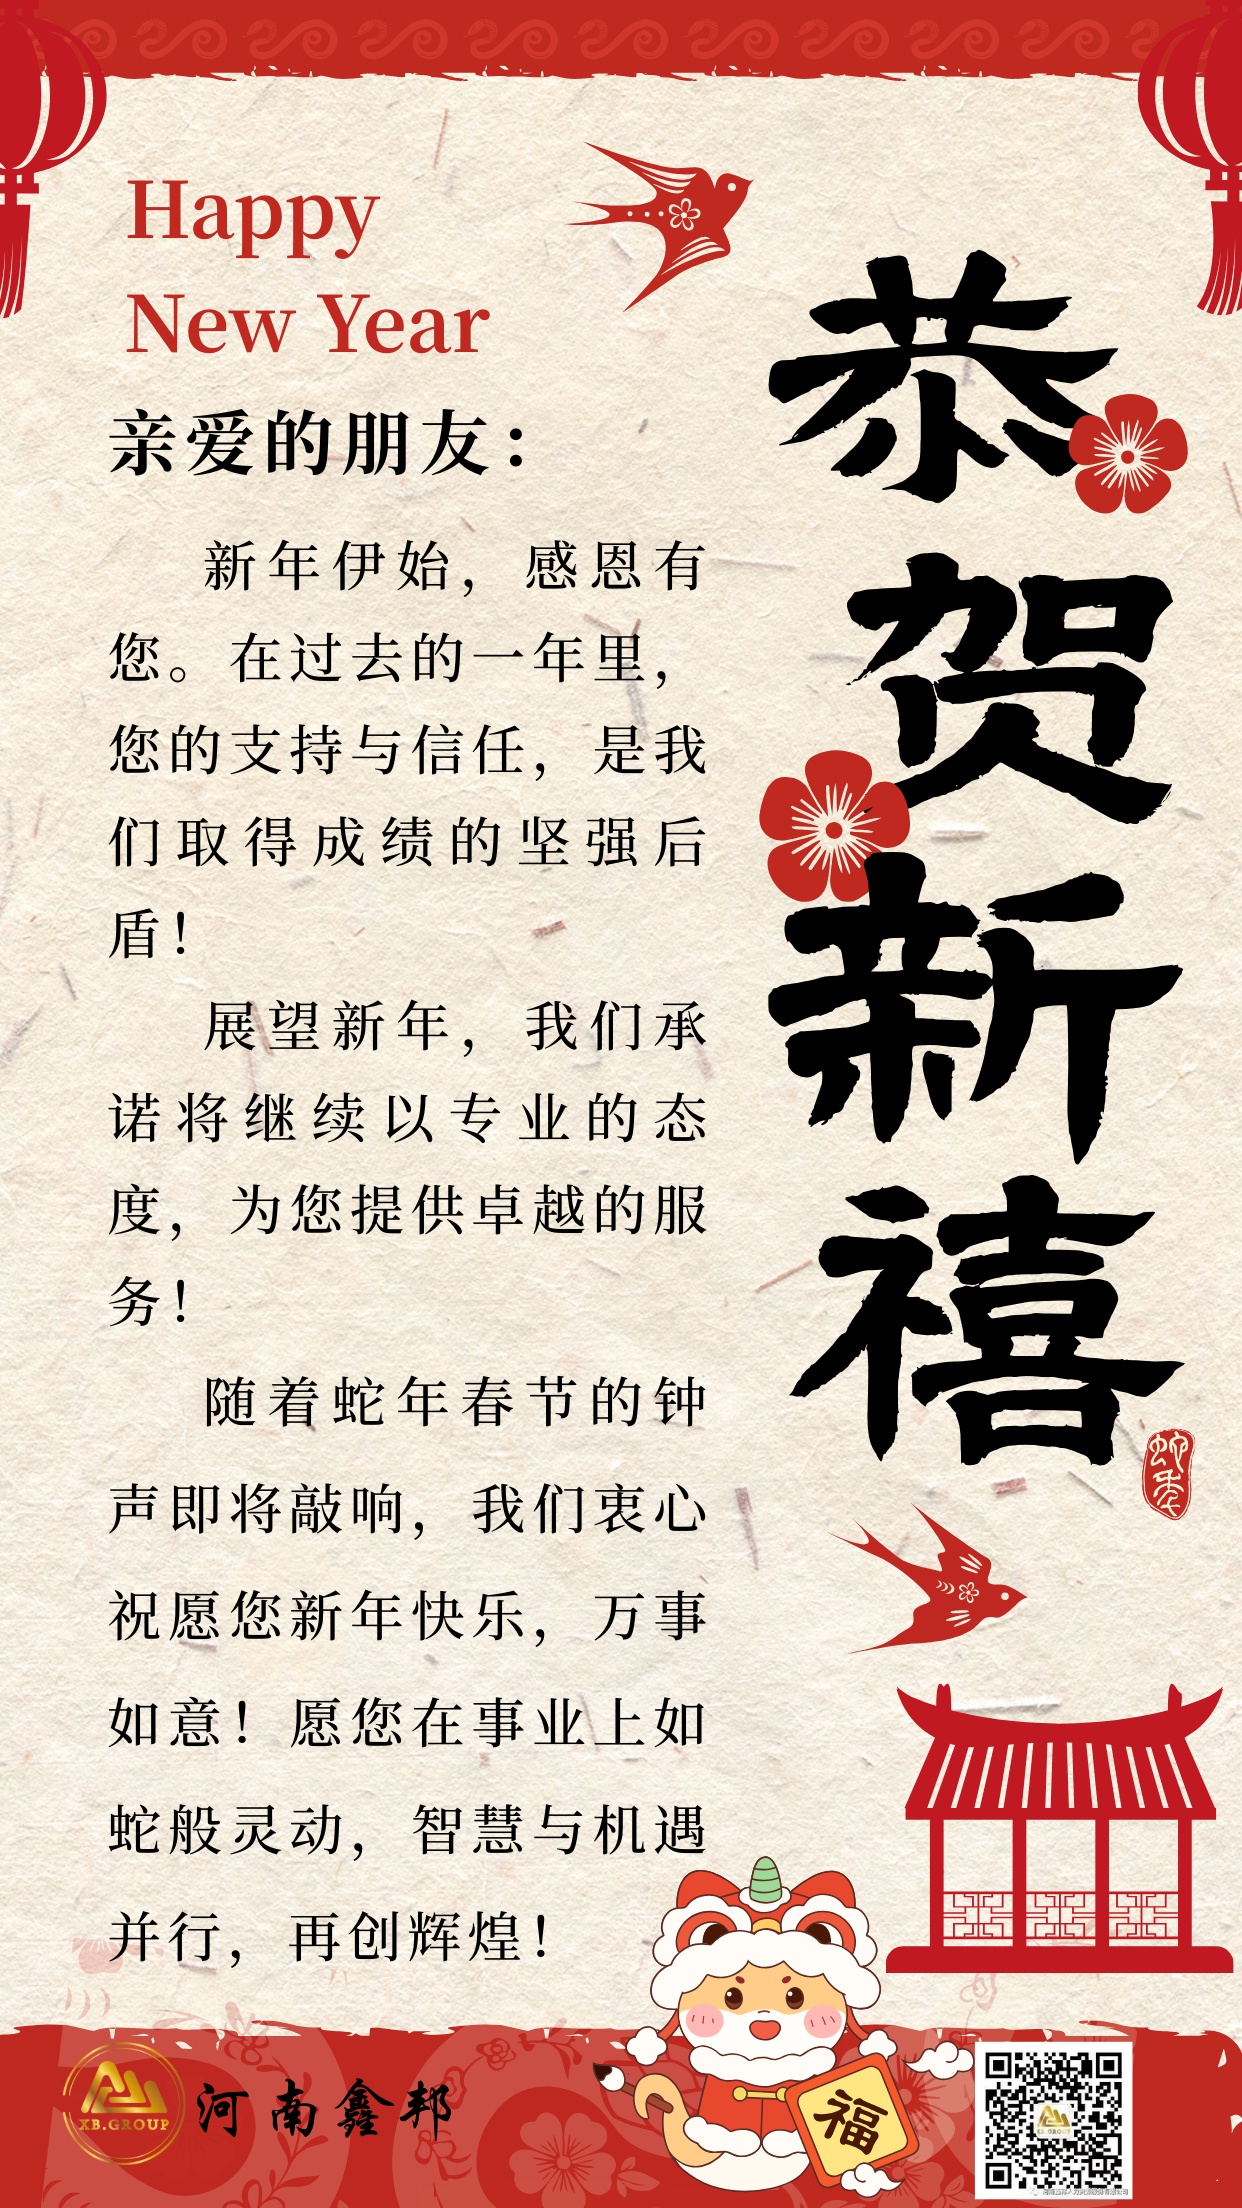 Happy
New Year
恭贺新禧
蛇年
亲爱的朋友：
新年伊始，感恩有
您。在过去的一年里，
您的支持与信任，是我
们取得成绩的坚强后
盾！
展望新年，我们承
诺将继续以专业的态
度，为您提供卓越的服
务！
随着蛇年春节的钟
声即将敲响，我们衷心
祝愿您新年快乐，万事
如意！愿您在事业上如
蛇般灵动，智慧与机遇
并行，再创辉煌！
XB.GROUP
河南鑫邦
福
XB.GROUP